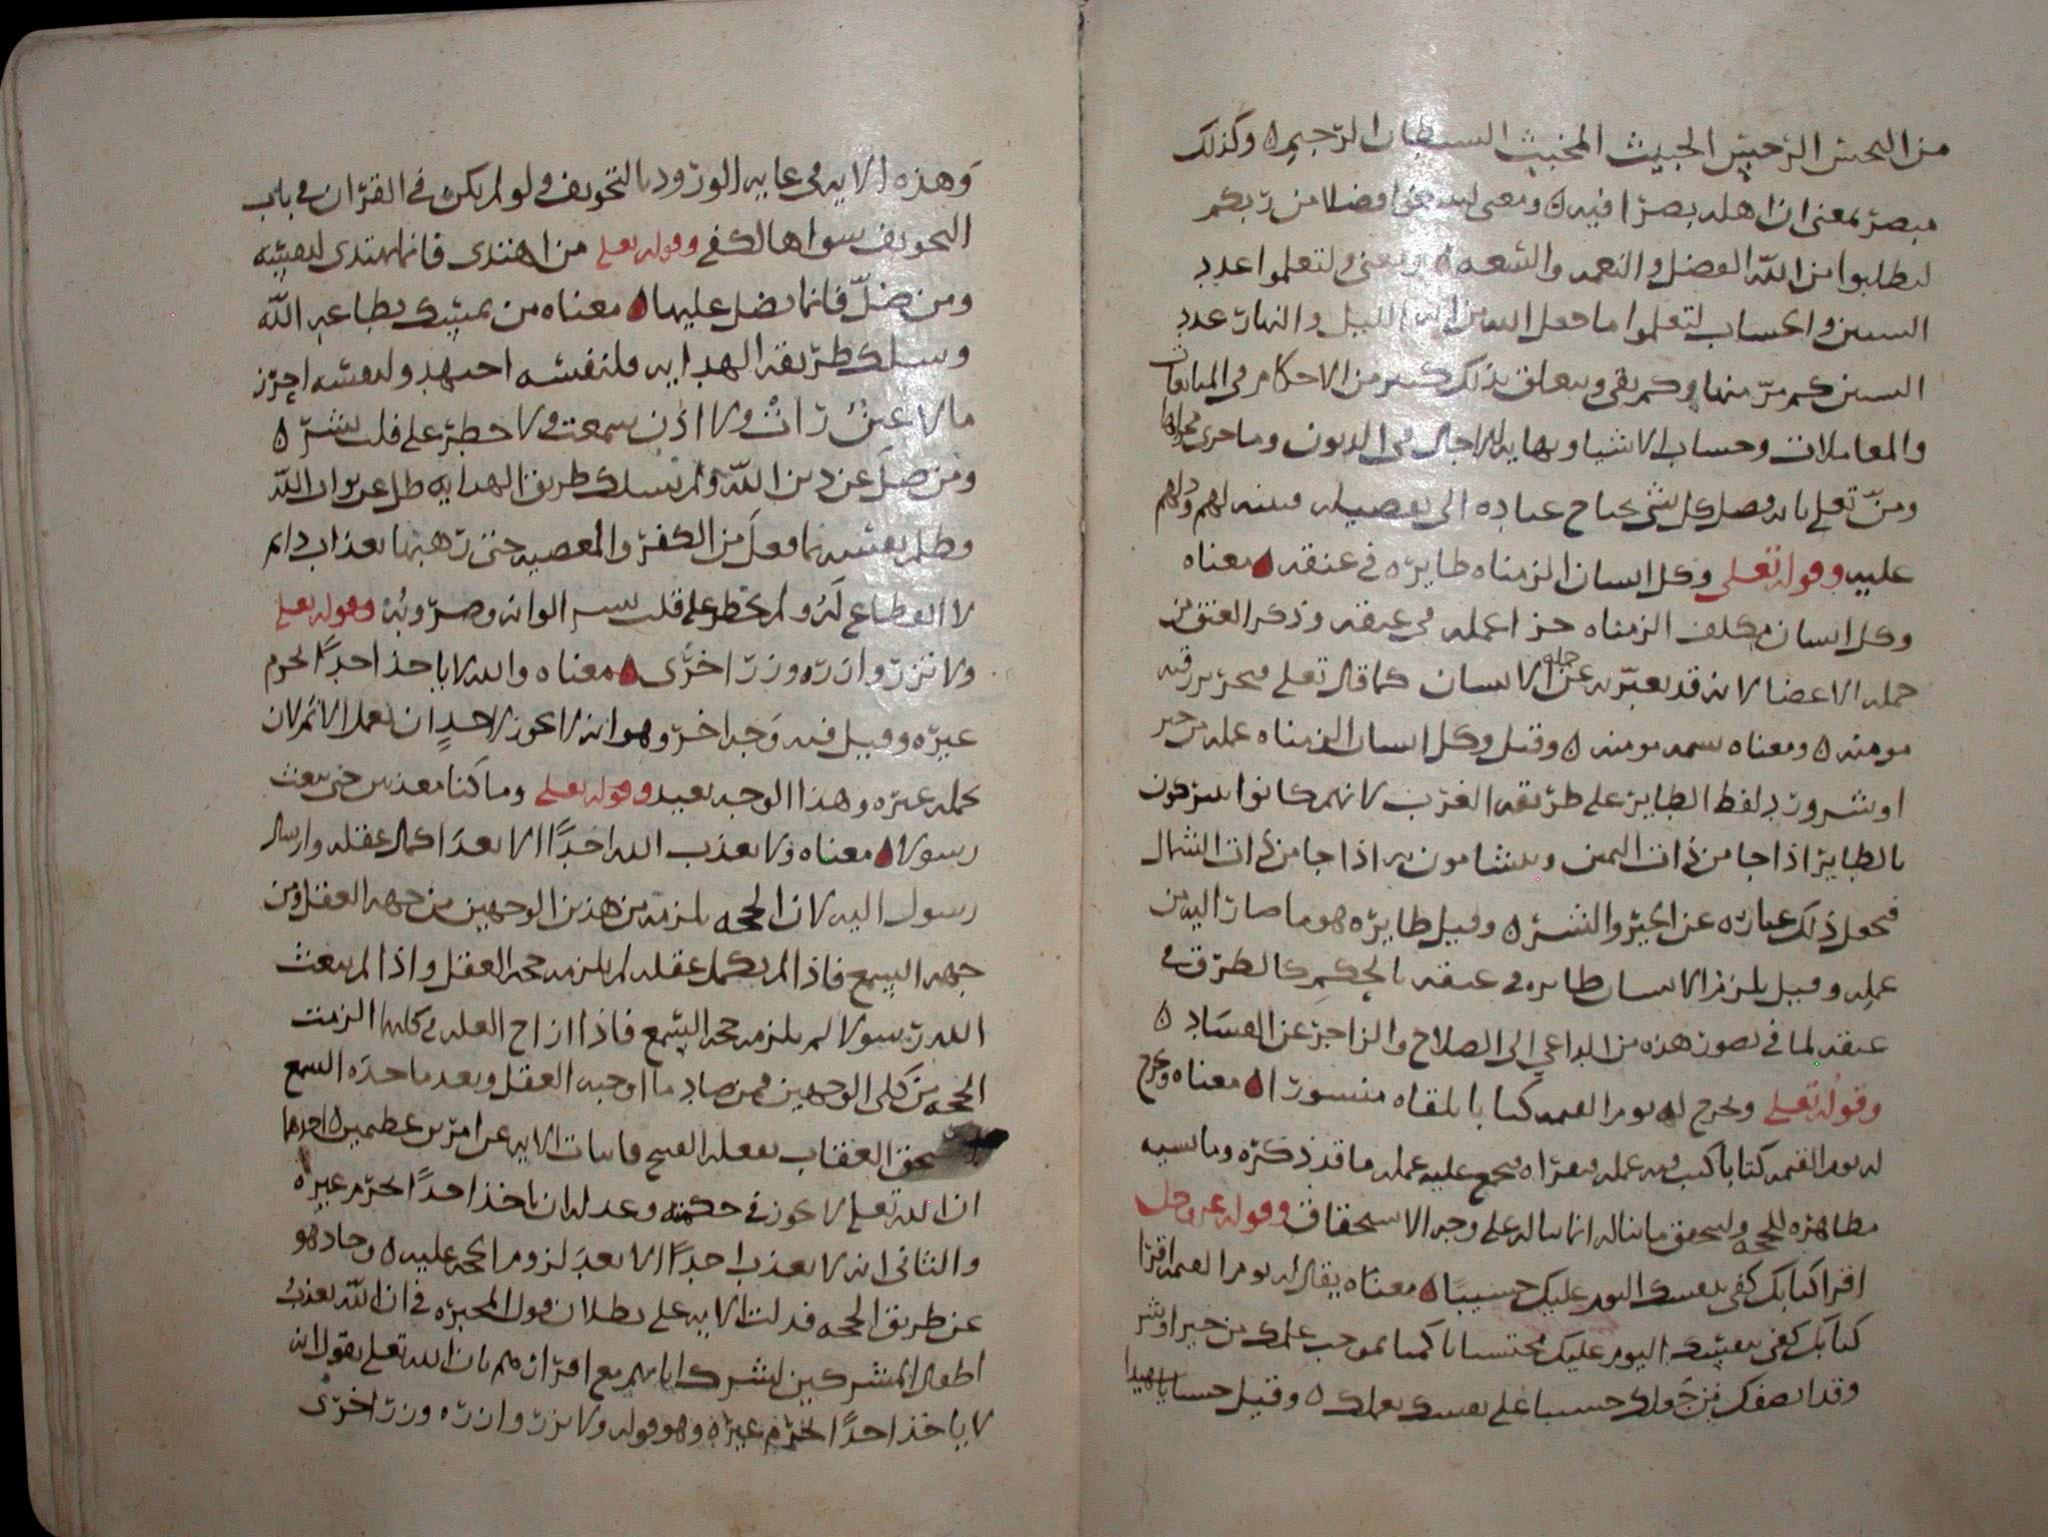 من النجس الرجس الخبيث المخبث الشيطان الرجيم ه وكذلك
مبصر بمعنى ان اهله بصرا فيه ه ومعنى لتبتغوا فضلا من ربكم
لتطلبوا من الله الفضل والنعمه والسعه ه ومعنى ولتعلموا عدد
السنين والحساب لتعلموا ما جعل الله من الليل والنهار عدد
السنين كم مر منها وكم بقي ويتعلق بذلك كثير من الاحكام في المبايعات
والمعاملات وحساب الاشيا ونهايه الاجال في الديون وما جرى مجراها
ومن تعلى بانه فصل كل شي يحتاج عباده الى تفصيله فبينه لهم ودلهم
عليه وقوله تعلى وكل انسان الزمناه طايره في عنقه ه معناه
وكل انسان مكلف الزمناه جزا عمله في عنقه وذكر العنق من
جمله الاعضا لانه قد يعبر به عن جمله الانسان كما قال تعلى فتحرير رقبه
مومنه ه ومعناه نسمه مومنه ه وقيل وكل انسان الزمناه عمله من خير
او شر ورد بلفظ الطاير على طريقه العرب لانهم كانوا يتبركون
بالطاير اذا جا من ذات اليمين ويتشامون به اذا جا من ذات الشمال
فجعل ذلك عباره عن الخير والشر ه وقيل طايره هو ما صار اليه من
عمله وقيل يلزم الانسان طايره في عنقه بالحكم كالطوق في
عنقه لما في تصور هذه من الداعي الى الصلاح والزاجر عن الفساد ه
وقوله تعلى ونخرج له يوم القيمه كتابا يلقاه منشورا ه معناه ونخرج
له يوم القيمه كتابا كتب فيه عمله فيقراه فيجمع عليه عمله ما قد ذكره وما نسيه
مظاهره للحجه وليتحقق ما يناله انما يناله على وجه الاستحقاق وقوله عز وجل
اقرا كتابك كفى بنفسك اليوم عليك حسيبا ه معناه يقال له يوم القيمه اقرا
كتابك كفى بنفسك اليوم عليك محتسبا حاكما بموجب عملك من خير او شر
وقد انصفك من جعلك حسيبا على نفسك بعملك ه وقيل حسيبا شهيدا
وهذه الايه في غايه الورود بالتخويف ولو لم يكن في القران في باب
التخويف سواها لكفى وقوله تعلى من اهتدى فانما يهتدي لنفسه
ومن ضل فانما يضل عليها ه معناه من تمسك بطاعه الله
وسلك طريقه الهدايه فلنفسه اجتهد ولنفسه احرز
ما لا عين رات ولا اذن سمعت ولا خطر على قلب بشر ه
ومن ضل عن دين الله ولم يسلك طريق الهدايه ضل عن ثواب الله
وظلم نفسه بما فعل من الكفر والمعصيه حتى رهنها بعذاب دايم
لا انقطاع له ولم يخطر على قلب بشر الوانه وضروبه وقوله تعلى
ولا تزر وازره وزر اخرى ه معناه والله لا ياخذ احدا بجرم
غيره وقيل فيه وجه اخر وهو انه لا يجوز لاحد ان يعمل الاثم لان
يحمله غيره وهذا الوجه بعيد وقوله تعلى وما كنا معذبين حتى نبعث
رسولا ه معناه ولا يعذب الله احدا الا بعد اكمال عقله وارسال
رسول اليه لان الحجه تلزمه من هذين الوجهين من جهه العقل ومن
جهه السمع فاذا لم يكمل عقله لم يلزمه حجه العقل واذا لم يبعث
الله رسولا لم يلزمه حجه السمع فاذا ازاح العله في كليهما الزمت
الحجه من كلى الوجهين فمن صادم ما اوجبه العقل وبعد ما حده السمع
استحق العقاب بفعله القبيح فابانت الايه عن امرين عظيمين ه احدهما
ان الله تعلى لا يجوز في حكمته وعدله ان ياخذ احدا بجرم غيره
والثاني انه لا يعذب احدا الا بعد لزوم الحجه عليه ه وحاد هو
عن طريق الحجه فدلت الايه على بطلان قول المجبره في ان الله يعذب
اطفال المشركين لشرك ابايهم مع اقرارهم بان الله تعلى يقول انه
لا ياخذ احدا بجرم غيره وهو قوله ولا تزر وازره وزر اخرى